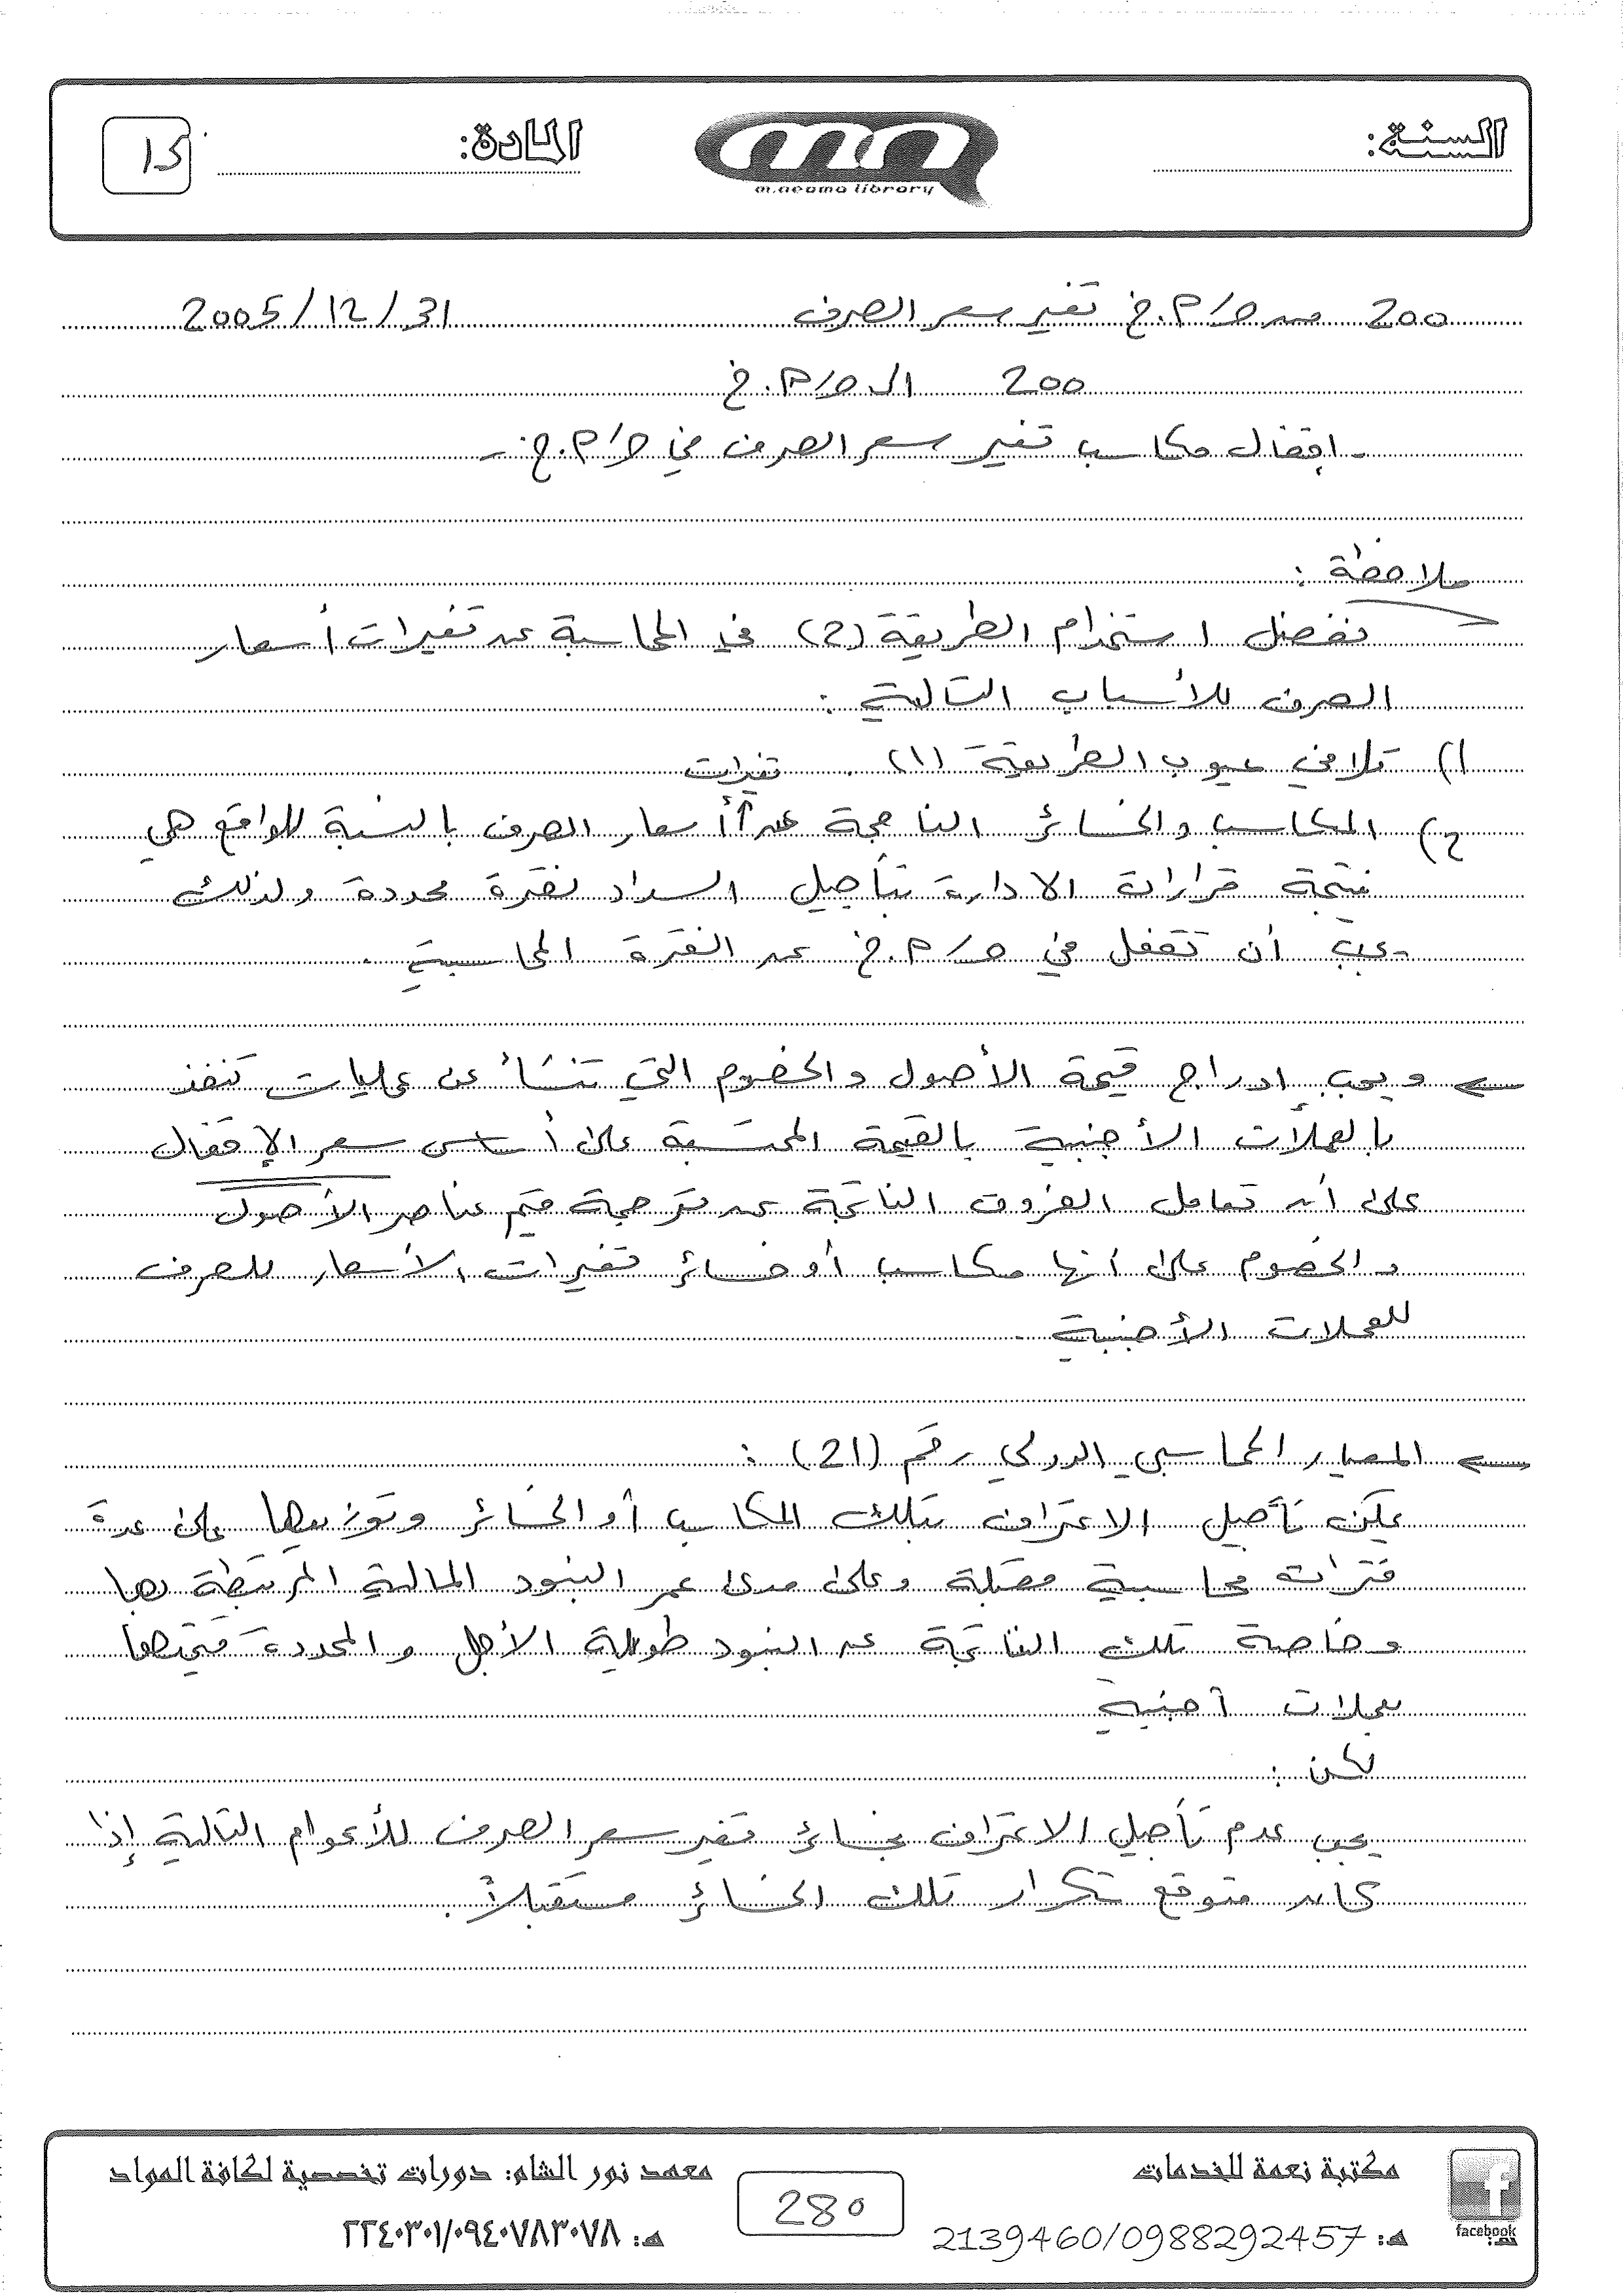 السنة:
m.neama library
المادة:
15
200 من ح/ م.خ تغير سعر الصرف 31/12/2005
200 الى ح/ م.خ
- اقفال مكاسب تغير سعر الصرف في ح/ م.خ -
ملاحظة :
نفضل استخدام الطريقة (2) في المحاسبة عن تغيرات أسعار
الصرف للأسباب التالية :
1) تلافي عيوب الطريقة (1) .
2) المكاسب والخسائر الناجمة عن تغيرات أسعار الصرف بالنسبة للواقع هي
نتيجة قرارات الادارة بتأجيل السداد لفترة محددة ولذلك
يجب أن تقفل في ح/ م.خ عن الفترة المحاسبية .
ويجب إدراج قيمة الأصول والخصوم التي تنشأ عن عمليات تنفذ
بالعملات الأجنبية بالقيمة المحتسبة على أساس سعر الإقفال
على أن تعامل الفروق الناتجة عن ترجمة قيم عناصر الأصول
والخصوم على أنها مكاسب أو خسائر تغيرات الأسعار للصرف
للعملات الأجنبية
المعيار المحاسبي الدولي رقم (21) :
يمكن تأجيل الاعتراف بتلك المكاسب أو الخسائر وتوزيعها على عدة
فترات محاسبية مقبلة وعلى مدى عمر البنود المالية المرتبطة بها
وخاصة تلك الناتجة عن البنود طويلة الأجل والمحددة قيمتها
بعملات أجنبية
لكن :
يجب عدم تأجيل الاعتراف بخسائر تغير سعر الصرف للأعوام التالية إذا
كان متوقع تكرار تلك الخسائر مستقبلاً .
facebook
مكتبة نعمة للخدمات
هـ: 2139460/0988292457
280
معهد نور الشام: دورات تخصصية لكافة المواد
هـ: ٢٢٤٠٣٠١/٠٩٤٠٧٨٣٠٧٨